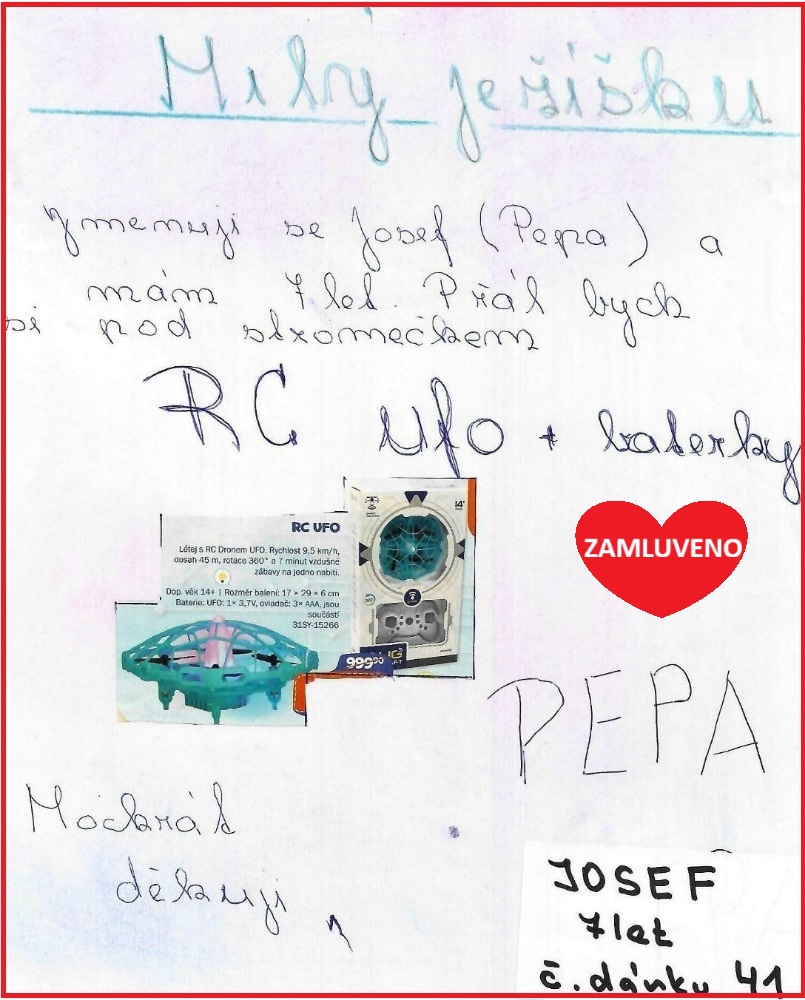 Milý ježíšku
jmenuji se Josef (Pepa) a
mám 7 let. Přál bych
si pod stromečkem
RC ufo + baterky
RC UFO
Létej s RC Dronem UFO. Rychlost 9,5 km/h,
dosah 45 m, rotace 360° a 7 minut vzdušné
zábavy na jedno nabití.
Dop. věk 14+ | Rozměr balení: 17 × 29 × 6 cm
Baterie: UFO: 1× 3,7V, ovladač: 3× AAA, jsou
součástí
31SY-15266
14+
999⁹⁰
ZAMLUVENO
PEPA
Mockrát
děkuji
JOSEF
7 let
č. dárku 41